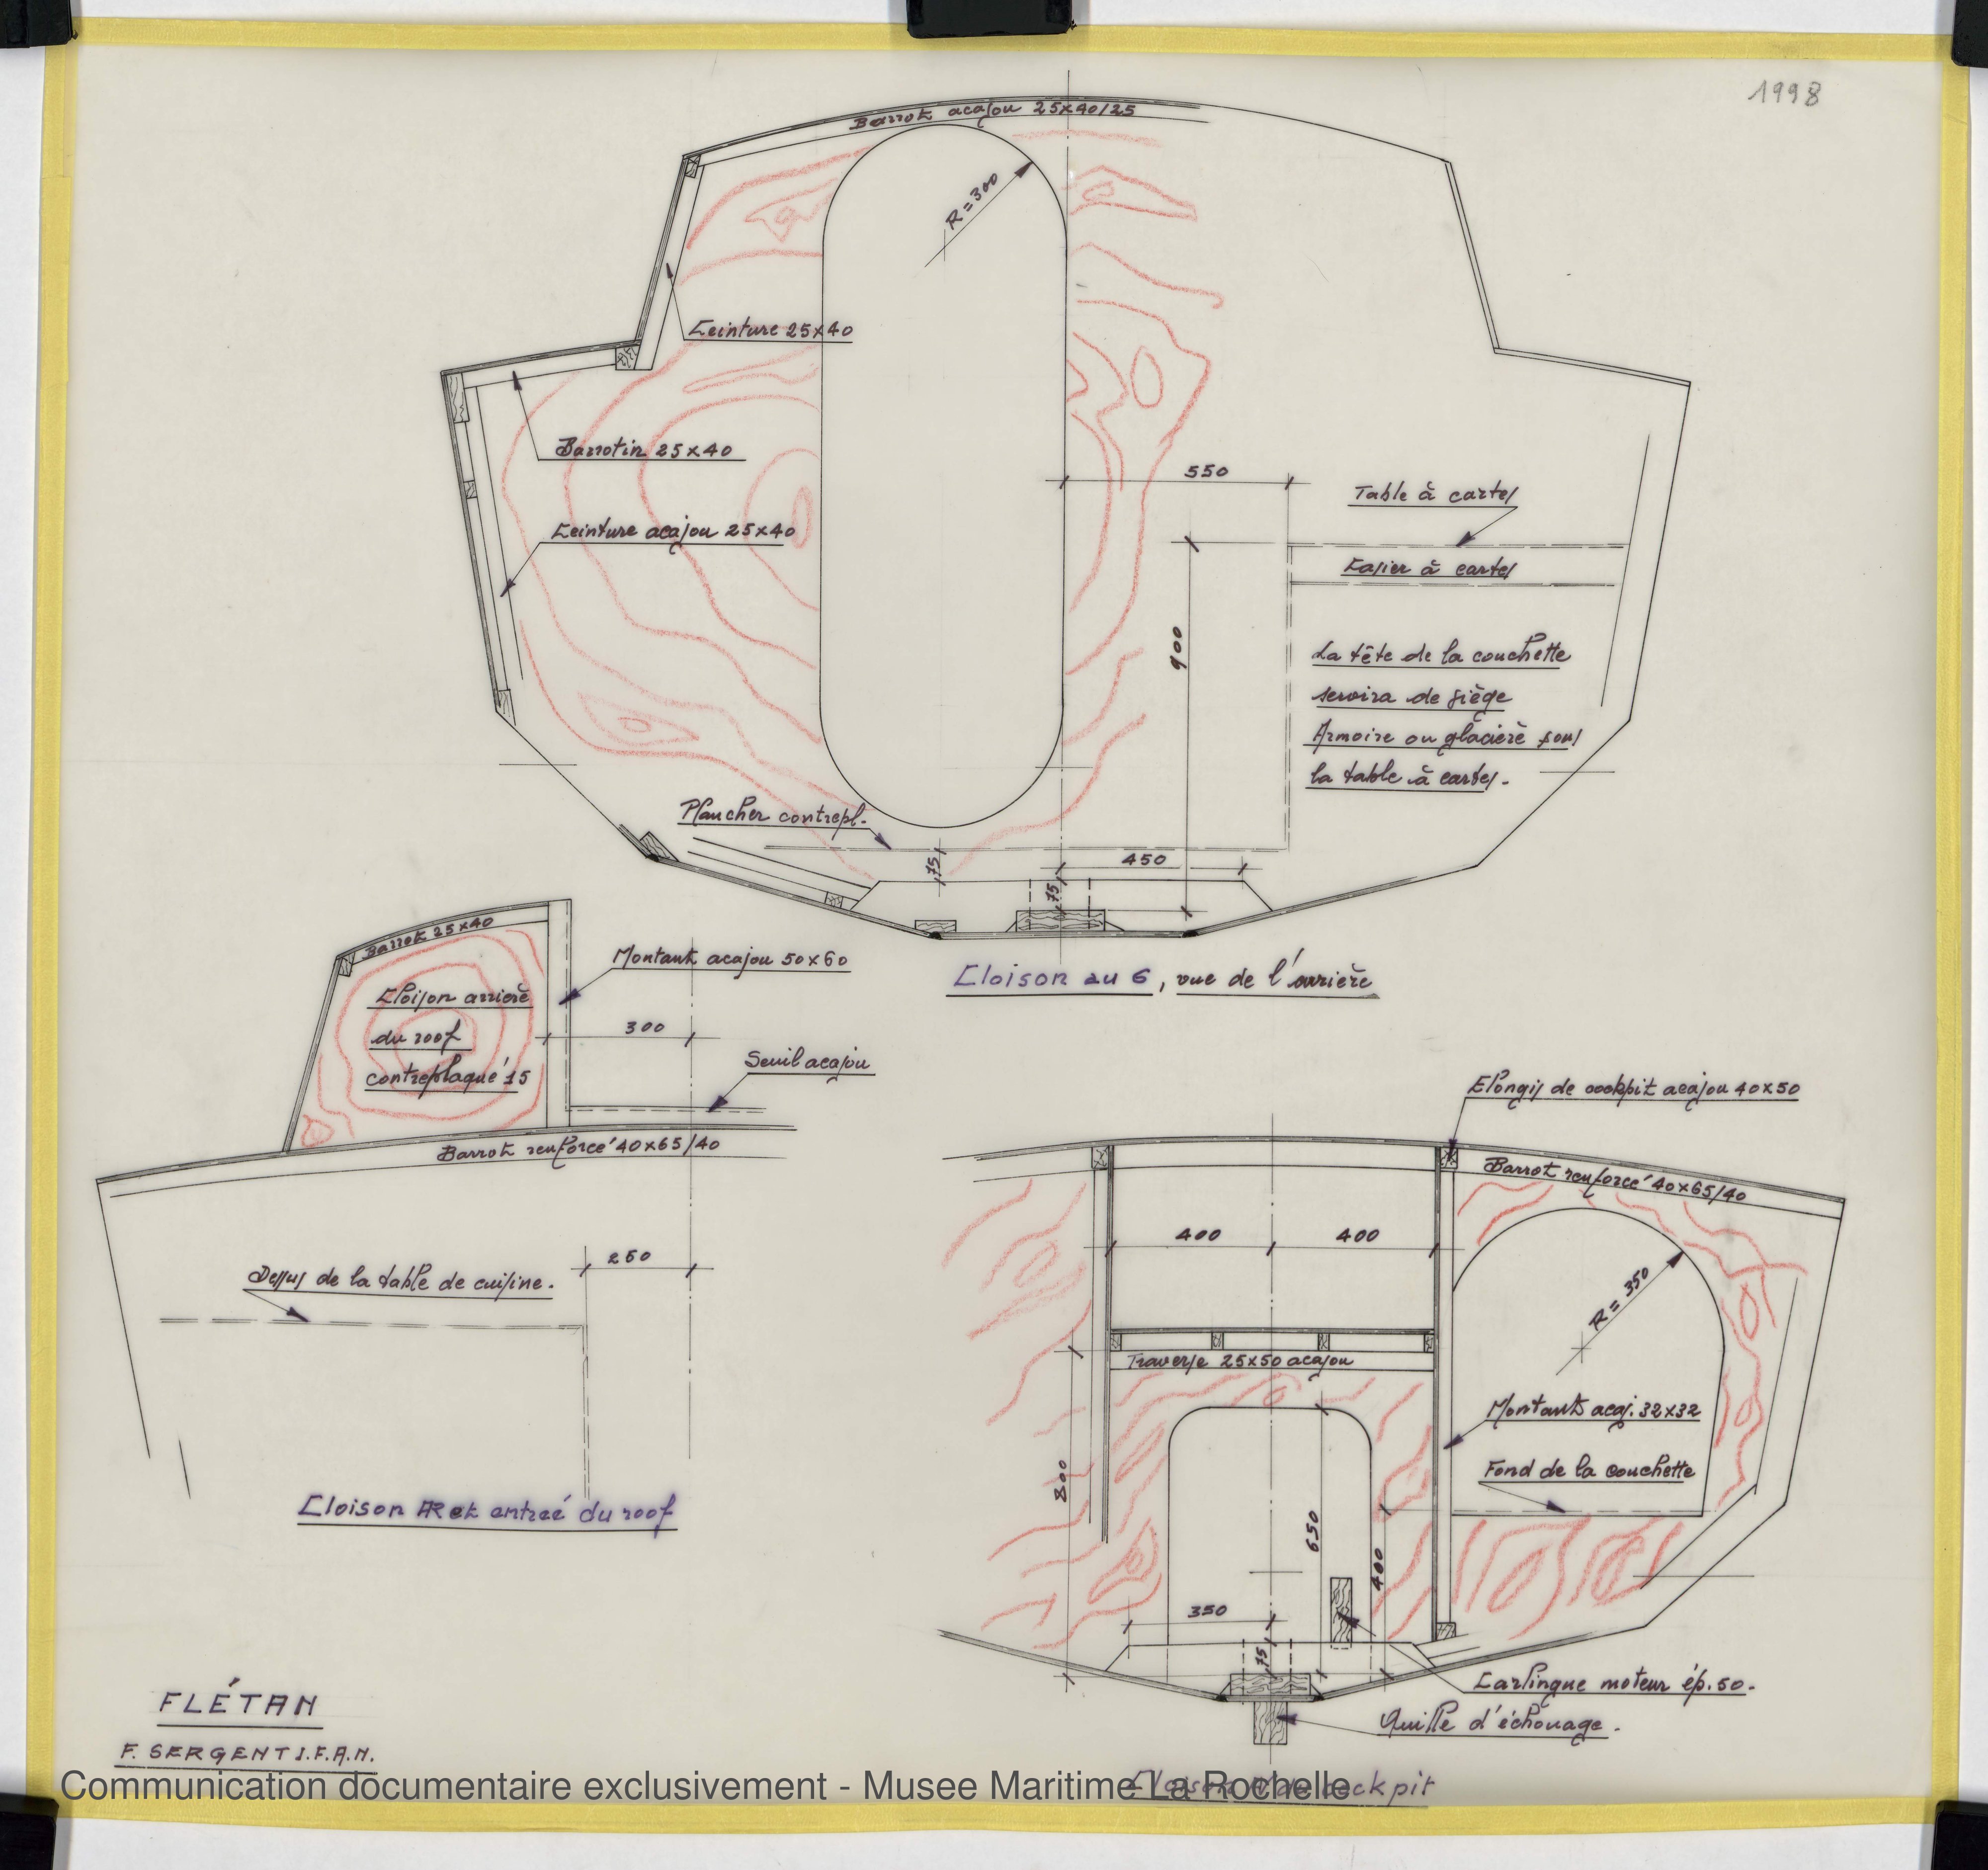 1998
Barrot acajou 25x40/25
R=300
Ceinture 25x40
Barrotin 25x40
Ceinture acajou 25x40
550
Table à cartes
Casier à cartes
900
La tête de la couchette
servira de siège
Armoire ou glacière sous
la table à cartes.
Plancher contrepl.
75
75
450
Cloison au 6, vue de l'arrière
Barrot 25x40
Montant acajou 50x60
Cloison arrière
du roof
contreplaqué 15
300
Seuil acajou
Barrot renforcé 40x65/40
260
Dessus de la table de cuisine.
Cloison AR et entrée du roof
Elongis de cockpit acajou 40x50
Barrot renforcé 40x65/40
400
400
R=350
Traverse 25x50 acajou
Montants acaj. 32x32
Fond de la couchette
800
650
400
350
75
Carlingue moteur ép. 50.
Quille d'échouage.
FLÉTAN
F. SERGENT I.F.A.N.
Communication documentaire exclusivement - Musee Maritime La Rochelle
Cloison cockpit